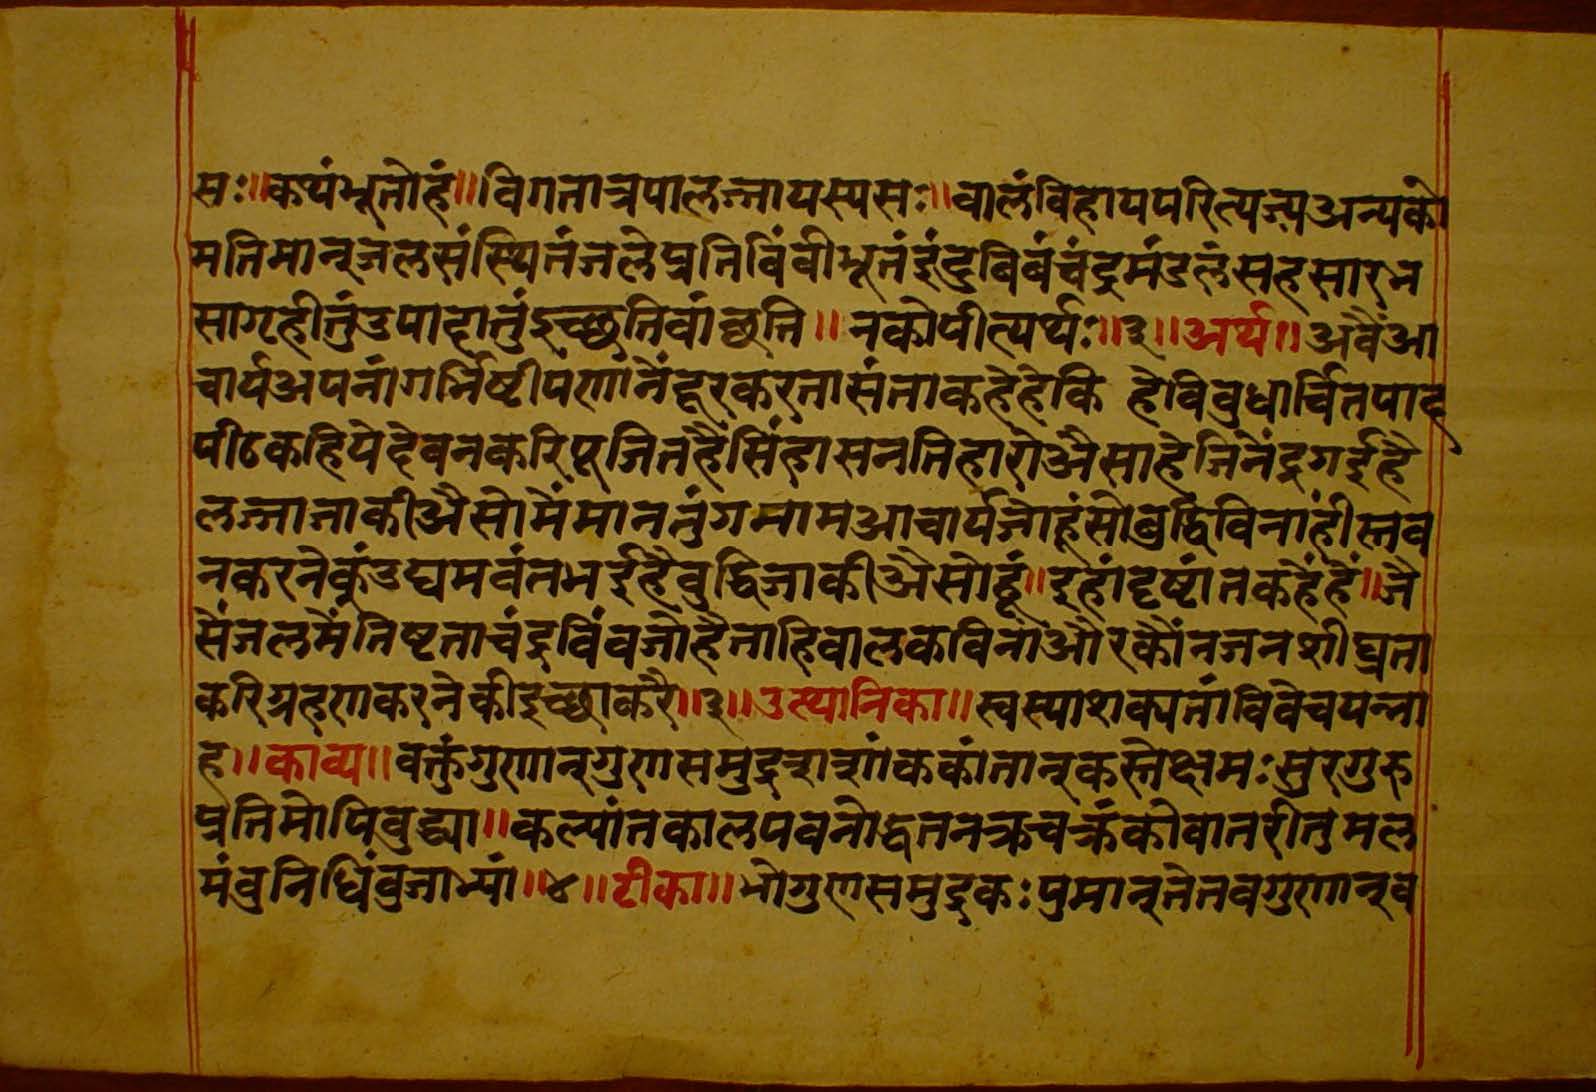 सः॥कथंभूतोहं॥विगतात्रपालज्जायस्यसः॥वालंविहायपरित्यज्यअन्यको
मतिमान्जलसंस्थितंजलेप्रतिविंवीभूतंइंदुबिंबंचंद्रमंडलंसहसारभ
सागृहीतुंउपादातुंइच्छतिवांछति॥नकोपीत्यर्थः॥३॥अर्थ॥अवैंआ
चार्यअपनांगर्भिष्टीपणांनैंदूरकरतासंताकहेहेकि हेविवुधार्चितपाद
पीठकहियेदेवनकरिपूजितहैसिंहासनतिहारोअैसाहेजिनेंद्रगईहै
लज्जाजाकीअैसोमैंमानतुंगनामआचार्यजोहूंसोवुद्धिविनांहीस्तव
नकरनेकुंउद्यमवंतभईहैवुद्धिजाकीअैसोहूं॥इहांदृष्टांतकहैंहैं॥जै
सैंजलमैंतिष्टताचंद्रविंवजोहैताहिवालकविनाऔरकौंनजनशीघ्रता
करिग्रहणकरनेकीइच्छाकरै॥३॥उत्थानिका॥स्वस्याशक्यतांविवेचयन्ना
ह॥काव्य॥वक्तुंगुणान्गुणसमुद्रशशांककांतान्कस्तेक्षमःसुरगुरु
प्रतिमोपिवुद्ध्या॥कल्पांतकालपवनोद्धतनक्रचक्रंकोवातरीतुमल
मंवुनिधिंवुजाभ्यां॥४॥टीका॥भोगुणसमुद्रकःपुमान्तेतवगुणान्व